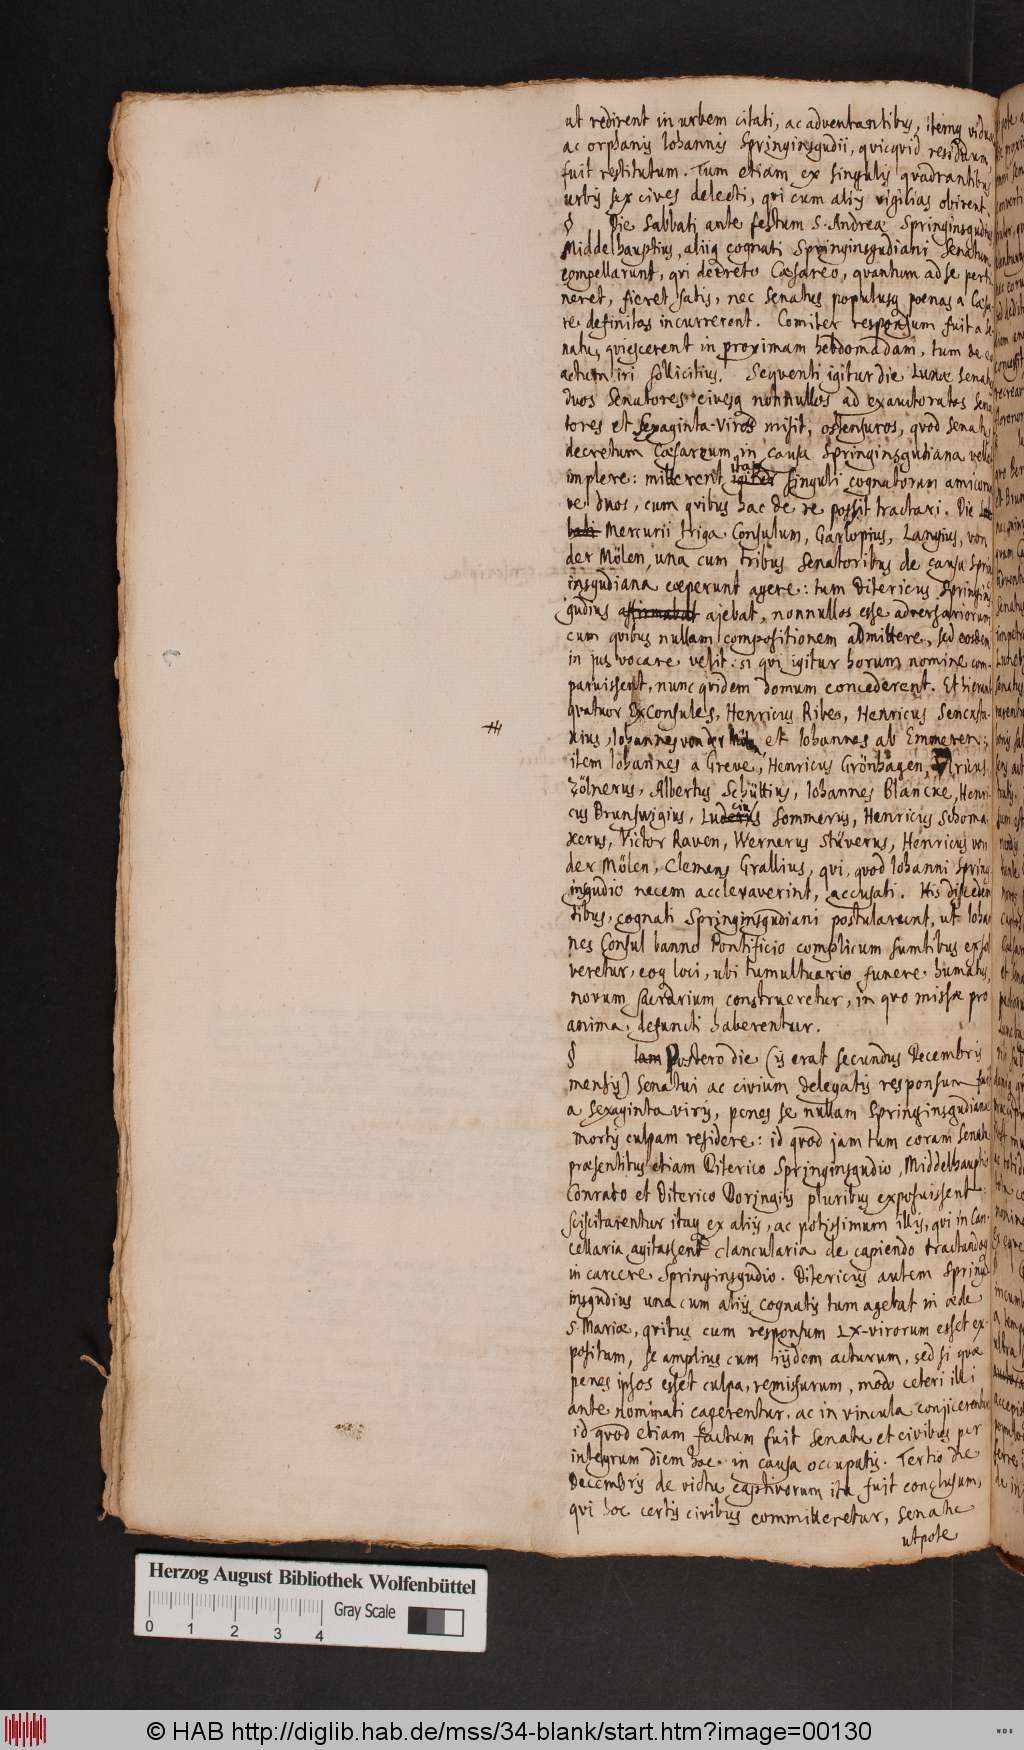 ut redirent in urbem citati, ac adventantibus, itemq viduæ
ac orphanis Iohannis Springinsgudii, quicquid residuum
fuit restitutum. Tum etiam ex singulis quadrantibus
urbis sex cives delecti, qui cum aliis vigilias obirent.
§ Die Sabbati ante festum S. Andreæ Springinsgudius
Middelhauptius, aliiq cognati Springinsgudiani Senatum
compellarunt, qvi decreto Cæsareo, quantum ad se perti
neret, fieret satis, nec Senatus populusq poenas a Cæsa
re definitas incurrerent. Comiter responsum fuit a Se
natu, quiescerent in proximam hebdomadam, tum de eo
actum iri sollicitius. Sequenti igitur die Lunæ Senatus
duos Senatores civesq nonnullos ad exauctoratos Sena
tores et Sexaginta-Viros misit, ostensuros, quod Senatus
decretum Cæsareum in causa Springinsgudiana vellet
implere: mitterent itaq igitur singuli cognatorum amicorum
ve duos, cum quibus hac de re possit tractari. Die Sab
bati Mercurii triga Consulum, Garlopius, Langius, von
der Mölen, una cum tribus Senatoribus de causa Sprin
insgudiana coeperunt agere: tum Ditericus Springins
gudius affirmabat ajebat, nonnullos esse adversariorum
cum quibus nullam compositionem admittere, sed eosdem
in jus vocare velit: si qvi igitur horum nomine com-
paruissent, nunc quidem domum concederent. Et hi erant
quatuor ExConsules, Henricus Ribe, Henricus Sencksta-
kius, Iohannes von der Mölen, et Iohannes ab Emmeren:,
item Iohannes a Greve, Henricus Grönhagen, Ulricus
Zölnerus, Albertus Schüttius, Iohannes Blancke, Henri
cus Brunswigius, Luderus Sommerus, Henricus Schoma
kerus, Victor Raven, Wernerus Stüverus, Henricus von
der Mölen, Clemens Grallius, qvi, quod Iohanni Spring
insgudio necem accleraverint, accusati. His disceden
tibus, cognati Springinsgudiani postularunt, ut Ioha
nes Consul banno Pontificio complicum sumtibus exsol
veretur, eoq loci, ubi tumultuario funere humatus,
novum sacrarium construeretur, in quo missæ pro
anima defuncti haberentur.
§ Iam Postero die (is erat secundus Decembris
mensis) Senatui ac civium delegatis responsum fuit
a Sexaginta viris, penes se nullam Springinsgudianæ
mortis culpam residere: id quod jam tum coram Senatu
præsentibus etiam Diterico Springinsgudio, Middelhauptio
Conrado et Diterico Doringiis pluribus exposuissent:
sciscitarentur itaq ex aliis, ac potissimum illis, qvi in Can-
cellaria agitassent clancularia de capiendo tractandoq
in carcere Springinsgudio. Ditericus autem Spring
insgudius una cum aliis cognatis tum agebat in æde
S. Mariæ, quibus cum responsum LX-virorum esset ex-
positum, se amplius cum iisdem acturum, sed si quæ
penes ipsos esset culpa, remissurum, modo ceteri illi
ante nominati caperentur, ac in vincula conjicerentur
id quod etiam factum fuit Senatu et civibus per
integrum diem hac in causa occupatis. Tertio die
Decembris de victu captivorum ita fuit conclusum,
qvi hoc certis civibus committeretur, Senatu
utpote
Herzog August Bibliothek Wolfenbüttel
Gray Scale
0 1 2 3 4
© HAB http://diglib.hab.de/mss/34-blank/start.htm?image=00130